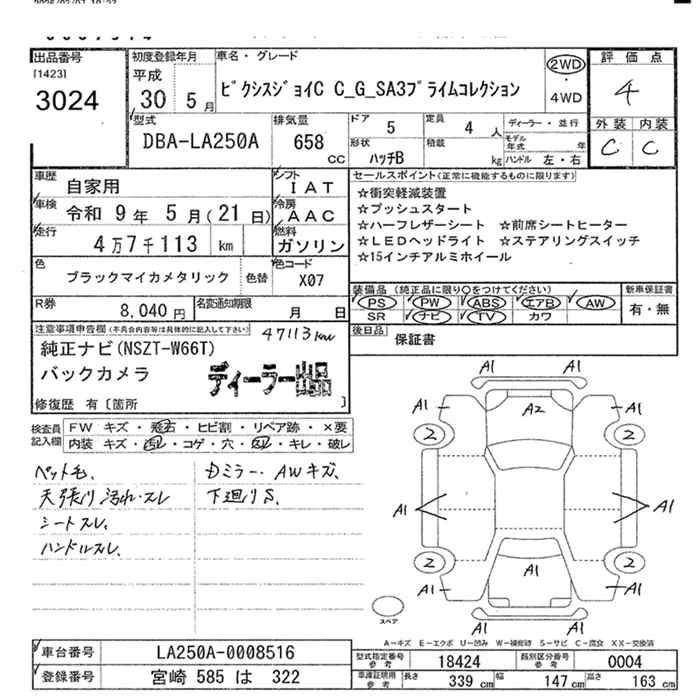 出品番号
[1423]
3024
初度登録年月
平成
30 年 5 月
車名・グレード
ピクシスジョイC C_G_SA3プライムコレクション
2WD
・
4WD
評価点
4
外装 内装
C C
型式
DBA-LA250A
排気量
658
cc
ドア 5
定員 4 人
形状 ハッチB
積載 kg
ディーラー・並行
モデル年式 年
ハンドル 左・右
車歴 自家用
車検 令和 9 年 5 月(21 日)
走行 4 万 7 千 113 km
シフト IAT
冷房 AAC
燃料 ガソリン
色 ブラックマイカメタリック 色替
色コード X07
R券 8,040 円
名変通知期限 月 日
セールスポイント(正常に機能するものに限ります)
☆衝突軽減装置
☆プッシュスタート
☆ハーフレザーシート ☆前席シートヒーター
☆LEDヘッドライト ☆ステアリングスイッチ
☆15インチアルミホイール
装備品(純正品に限り○をつけてください)
PS PW ABS エアB AW
SR ナビ TV カワ
新車保証書
有・無
後日品 保証書
注意事項申告欄(不具合内容等は具体的に記入して下さい)
47113km
純正ナビ(NSZT-W66T)
バックカメラ
ディーラー出品
修復歴 有〔箇所 〕
検査員記入欄
FW キズ・飛石・ヒビ割・リペア跡・×要
内装 キズ・汚れ・コゲ・穴・スレ・キレ・破レ
ペット毛、
天張り汚れ・スレ
シートスレ、
ハンドルスレ、
Dミラー・AWキズ、
下廻りS、
A1
A1 A2 A1
2 2
A1 A1
2 2
A1 A1 A1
A1
スペア
A-キズ E-エクボ U-凹み W-補修跡 S-サビ C-腐食 XX-交換済
車台番号 LA250A-0008516
登録番号 宮崎 585 は 322
型式指定番号 参考 18424
類別区分番号 参考 0004
車庫証明用 参考 長さ 339 cm 幅 147 cm 高さ 163 cm